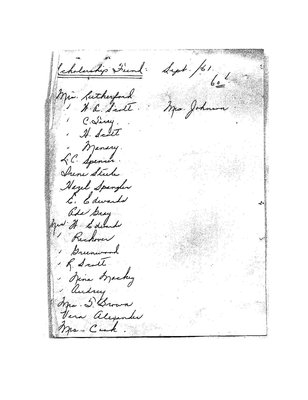 Scholarship Fund. Sept. /61
60¢
Mrs. Rutherford
" H. R. Scott Mrs Johnson
" C.
" H. Scott
" Massey
L.C. Spencer
Irene Steele
Hazel Spangler
E. Edwards
Ada Gray
Mrs H Edwards
"
" Greenwood
" R Scott
" Nina Mackey
" Audrey
Mrs. T. Brown
Vera Alexander
Mrs. Cook